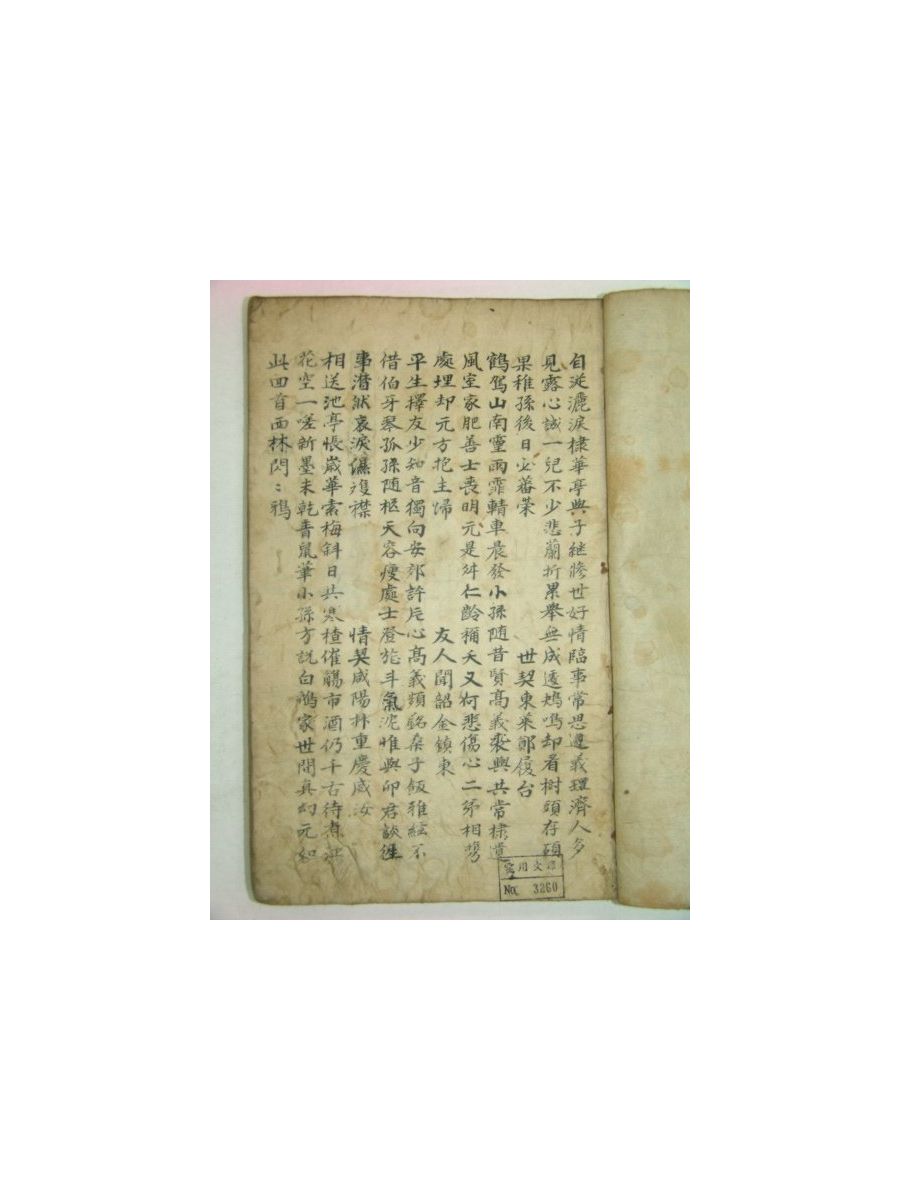 自從漉淚棣華亭與子継修世好情臨事常思遵義理濟人多
見露心誠一兒不少悲蘭折累擧無成遠鴆鳴却看樹頭存碩
果稚孫後日必蕃榮 世契東萊鄭履台
鶴駕山南霊雨霏輤車晨發小孫隨昔賢高義裵與共常棣遺
風室家肥善士丧明元是舛仁齡稱夭又何悲傷心二弟相
處埋却元方抱主歸 友人聞韶金鎮東
平生擇友少知音獨向安郊許片心高義頻銘桑子飯雅絃不
借伯牙琴孤孫随柩天容瘦處士登旅斗氣沈惟與卬君談徃
事潸然哀淚濕複襟 情契咸陽朴重慶咸汝
相送池亭悵歲華索梅斜日共寒楂催觴市酒仍千古待煮
花空一嗟新墨未乾青鼠筆小孫方説白鴻家世間真幻元如
此回首西林閃〻鴉
用文
No. 3260